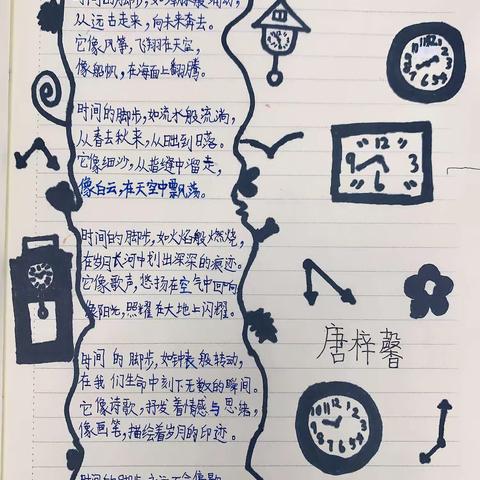 时间的脚步,如
从远古走来,向未来奔去。
它像风筝,飞翔在天空,
像船帆,在海面上翻腾。
时间的脚步,如流水般流淌,
从春去秋来,从日出到日落。
它像细沙,从指缝中溜走,
像白云,在天空中飘荡。
时间的脚步,如火焰般燃烧,
在岁月长河中划出深深的痕迹。
它像歌声,悠扬在空气中回响
像阳光,照耀在大地上闪耀。
时间的脚步,如钟表般转动,
在我们生命中刻下无数的瞬间。
它像诗歌,抒发着情感与思绪,
像画笔,描绘着岁月的印迹。
时间的脚步,永远不会停歇
唐梓馨
12
3
6
9